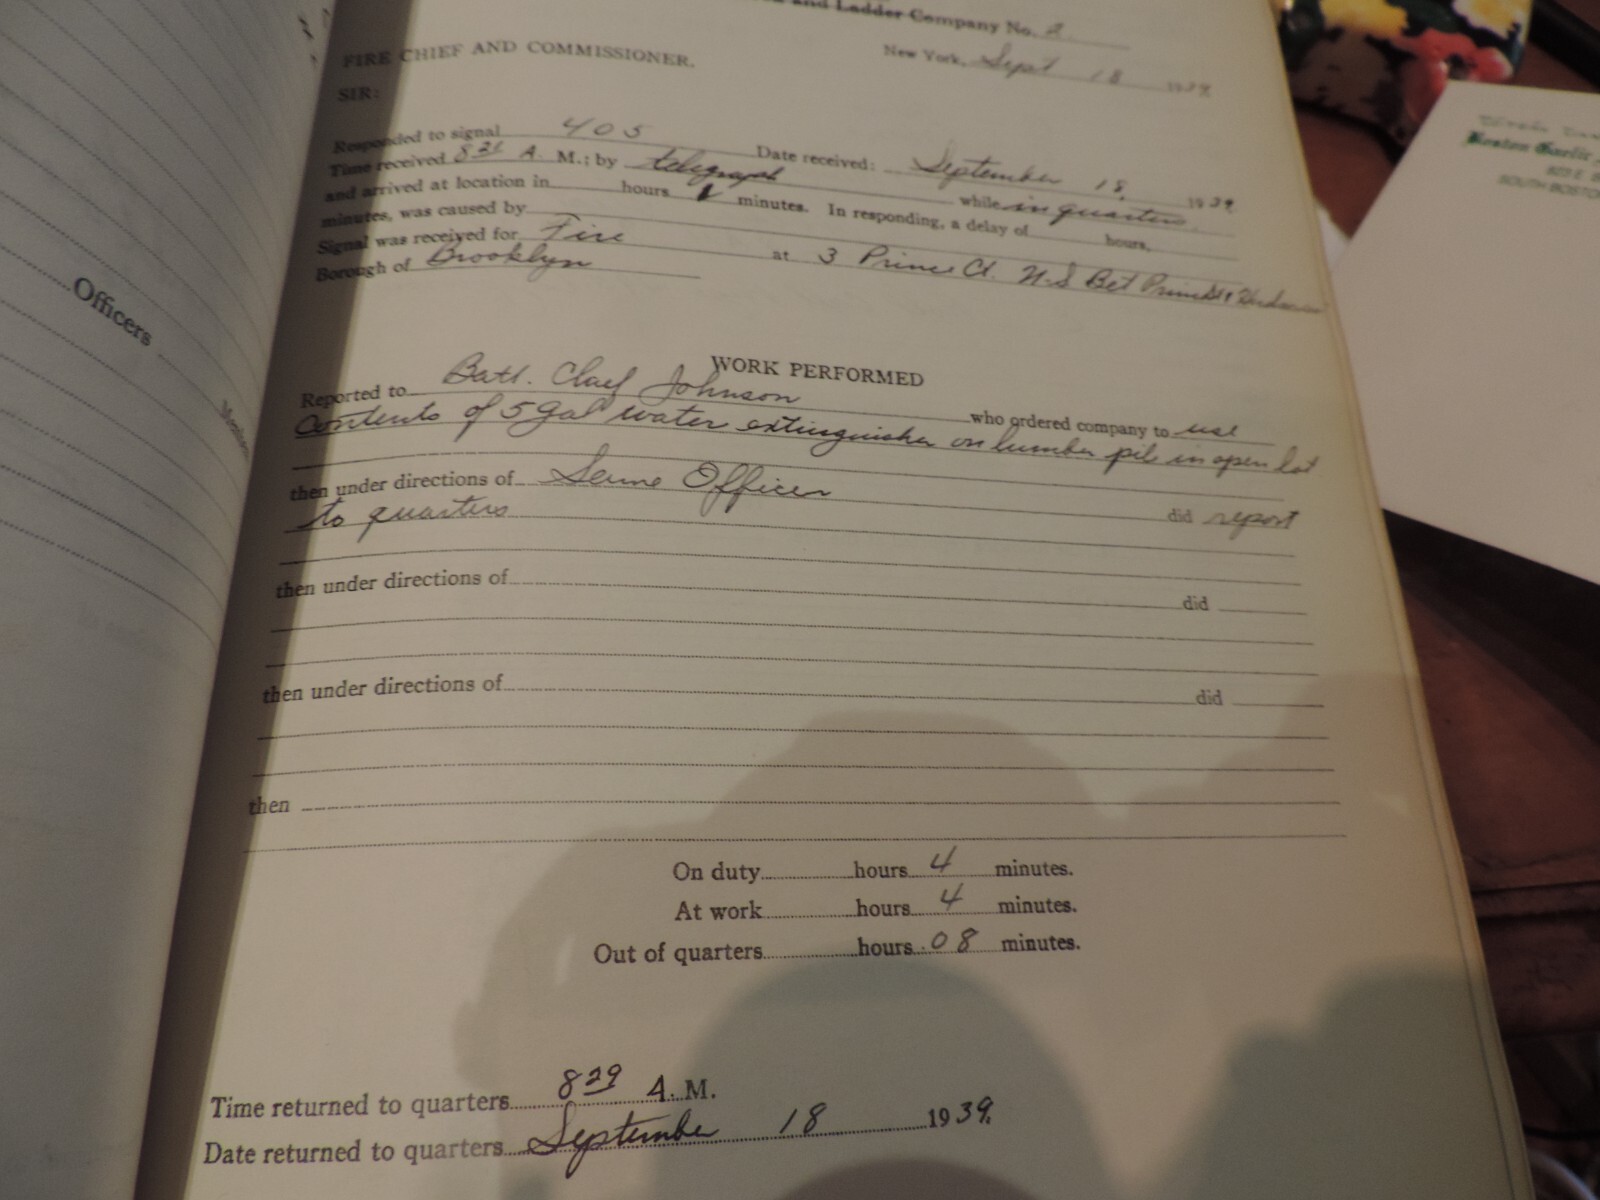 and Ladder Company No. 2
New York, Sept 18 1939
FIRE CHIEF AND COMMISSIONER.
SIR:
Responded to signal 405 Date received: September 18, 1939
Time received 8 21 A. M.; by telegraph while in quarters.
and arrived at location in hours minutes. In responding, a delay of hours,
minutes, was caused by
Signal was received for Fire at 3 Prince Ct. N-S Bet Prince St &
Borough of Brooklyn
WORK PERFORMED
Reported to Batt. Chief Johnson who ordered company to use
Contents of 5 Gal water extinguisher on lumber pile in open lot
then under directions of Same Officer did report
to quarters
then under directions of did
then under directions of did
then
On duty hours 4 minutes.
At work hours 4 minutes.
Out of quarters hours 08 minutes.
Time returned to quarters 8 29 A. M.
Date returned to quarters September 18 1939.
Officers
Members
Boston Gaelic
SOUTH BOSTON